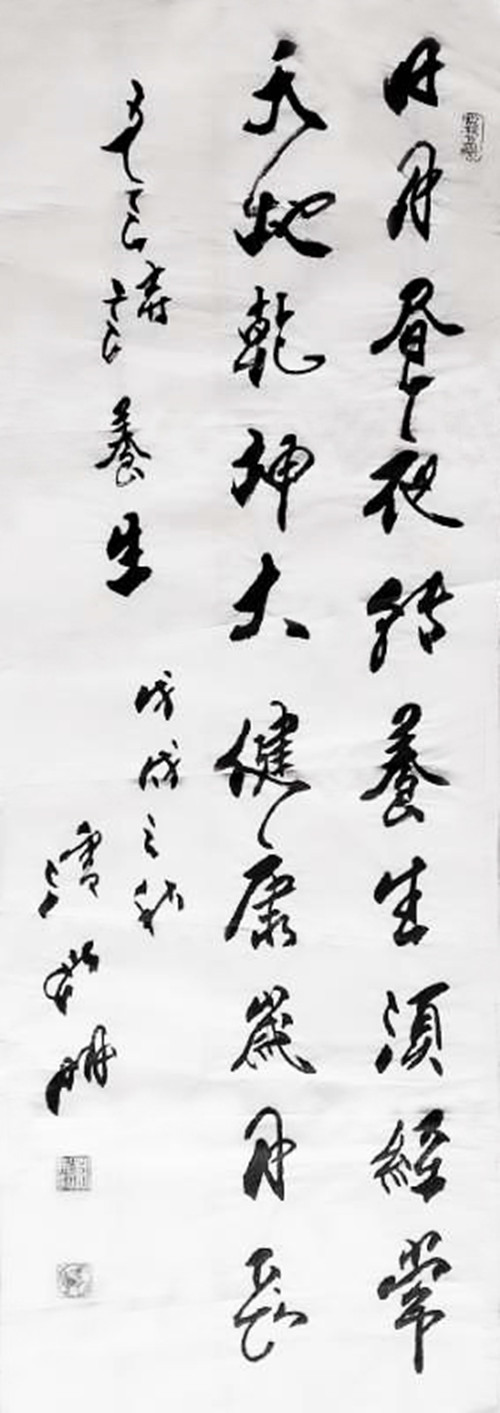 日月昼夜转養生須經常
天地乾坤大健康歲月長
養生
戊戌之秋